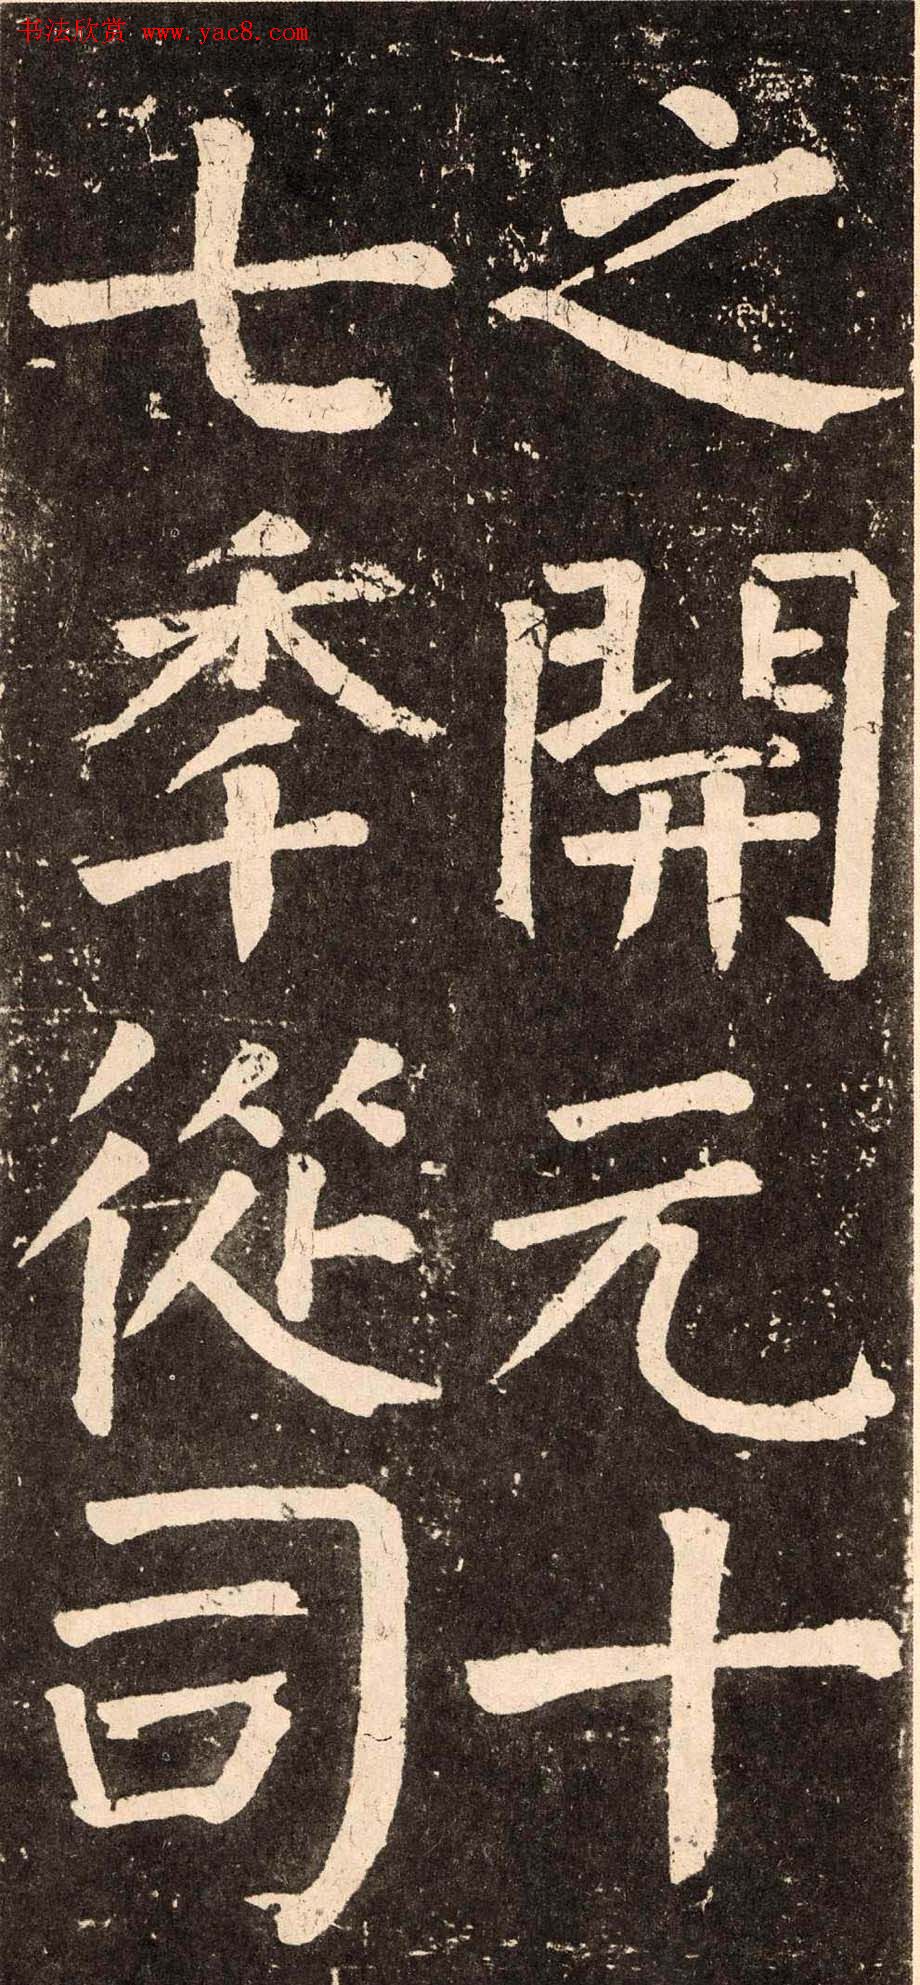 书法欣赏 www.yac8.com
之開元十
七秊從司